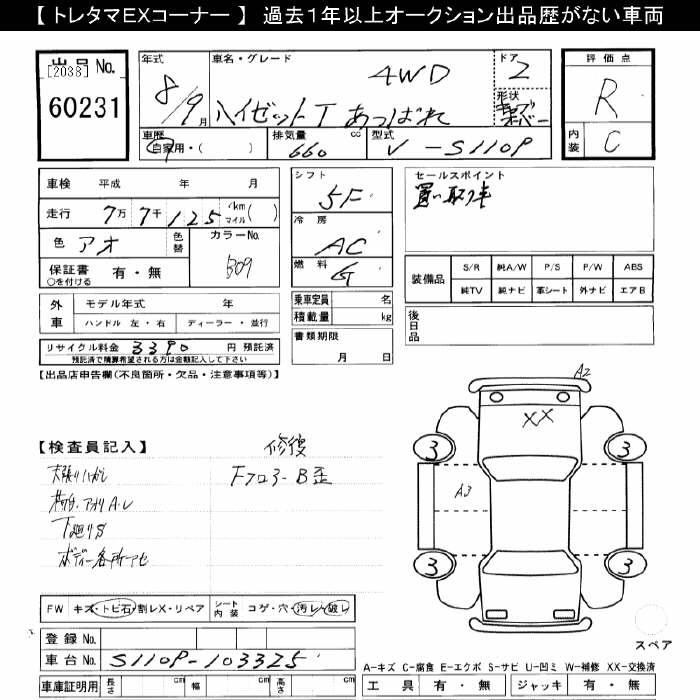 【 トレタマEXコーナー 】 過去1年以上オークション出品歴がない車両
出品 No.
[2038]
60231
年式
8/9月
車名・グレード
4WD
ハイゼットT あっぱれ
ドア
2
形状
車歴
自家用・( )
排気量
660 cc
型式
V-S110P
評価点
R
内装
C
車検 平成 年 月
走行 7万 7千 125 km マイル( )
色 アオ
色替
カラーNo.
B09
保証書 有・無
○を付ける
外車
モデル年式 年
ハンドル 左・右 ディーラー・並行
リサイクル料金 3390 円 預託済
預託済で精算希望される方は金額記入して下さい
シフト
5F
冷房
AC
燃料
G
乗車定員 名
積載量 kg
書類期限
月 日
セールスポイント
買い取り車
装備品
S/R 純A/W P/S P/W ABS
純TV 純ナビ 革シート 外ナビ エアB
後日品
【出品店申告欄(不良箇所・欠品・注意事項等)】
【検査員記入】
修復
天張りハガレ
Fフロアー B歪
荷台・アオリA・U
下廻りS
ボディー各所アセ
A2
XX
3
3
A3
3
3
スペア
FW キズ・トビ石・割レX・リペア
シート内装 コゲ・穴・汚レ・破レ
登録 No.
車台 No. S110P-103325
車庫証明用 長さ cm 幅 cm 高さ cm
A-キズ C-腐食 E-エクボ S-サビ U-凹ミ W-補修 XX-交換済
工具 有・無 ジャッキ 有・無